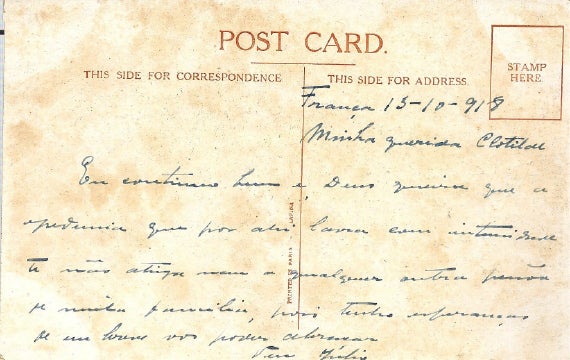 POST CARD.
THIS SIDE FOR CORRESPONDENCE
THIS SIDE FOR ADDRESS.
STAMP
HERE.
França 15-10-918
Minha querida Clotilde
Eu continuo bem e Deus queira que a
epedemia que por ahi lavra com intensidade
te não atinja nem a qualquer outra pessoa
de nossa familia, pois tenho esperanças
de em breve vos poder abraçar
Teu Júlio
PRINTED IN PARIS